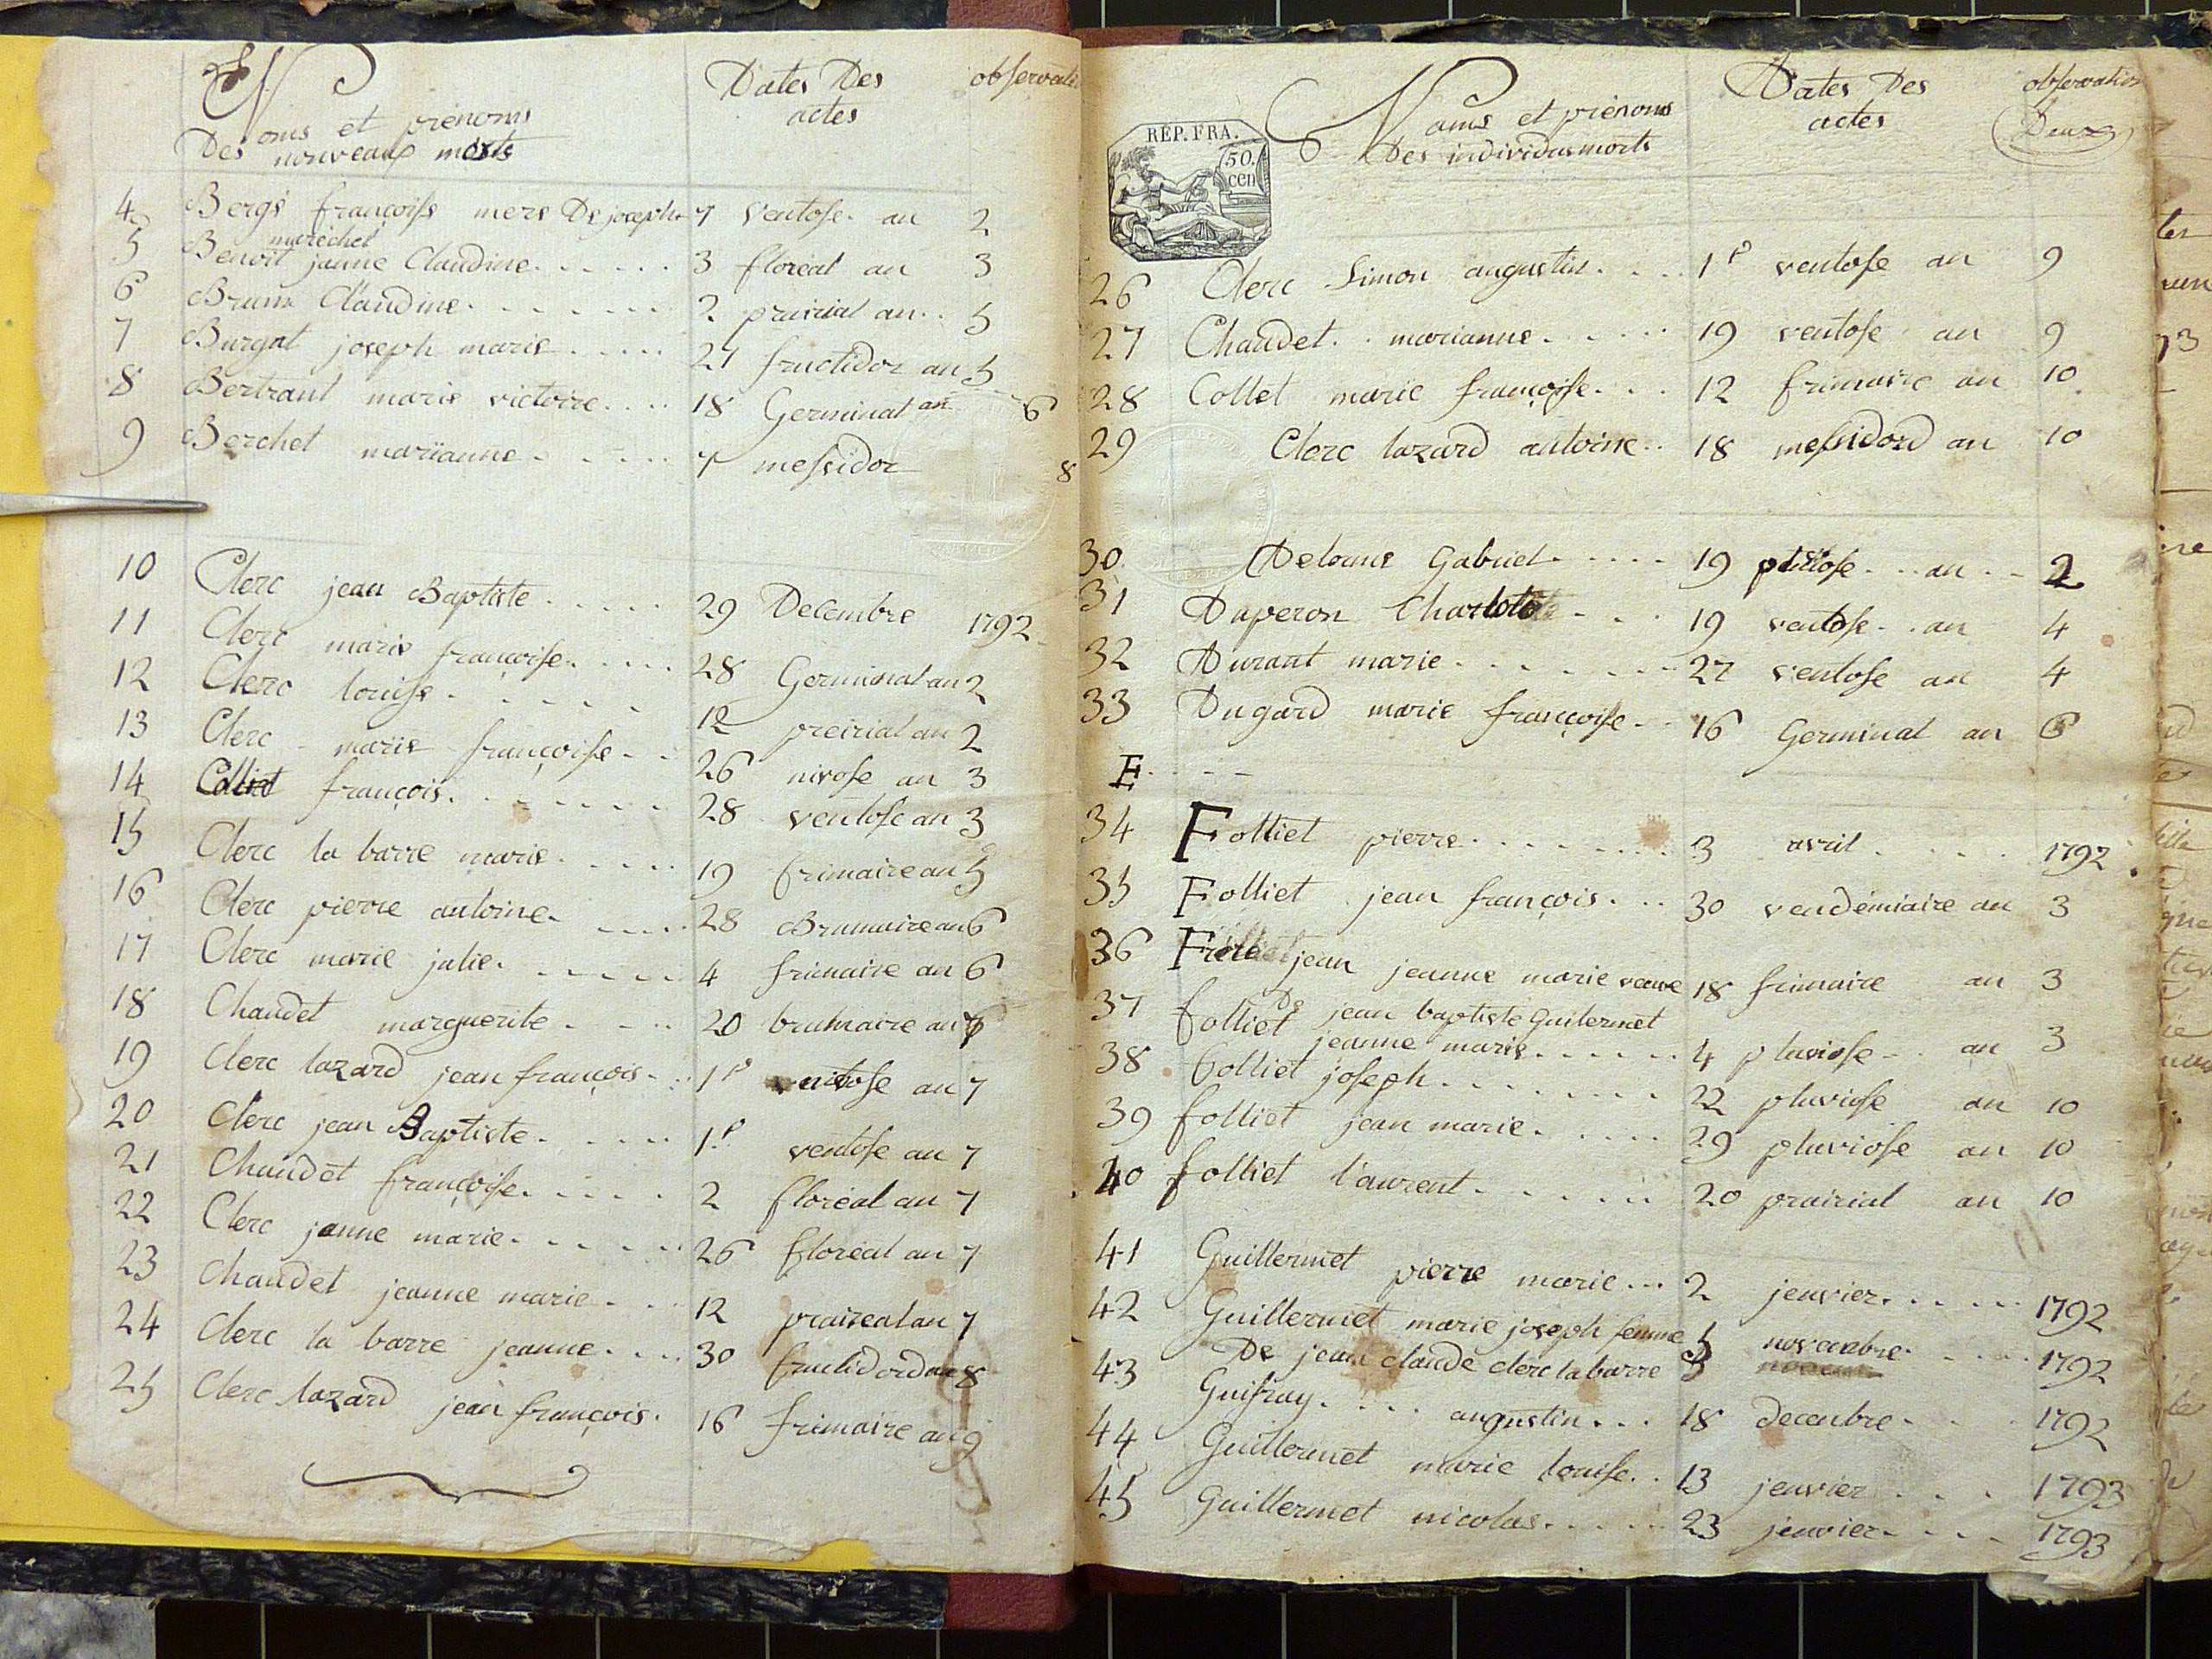 Noms et prénoms
Des nouveaux morts
Dates Des
actes
observati
4 Bergé françoise mere De joseph 7 ventose an 2
maréchet
5 Benoit janne Claudine 3 floréal an 3
6 Brunn Claudine 2 prairial an 5
7 Burgat joseph marie 27 fructidor an 5
8 Bertrant marie victoire 18 Germinal an 6
9 Berchet marianne 7 messidor 8
10 Clerc jean Baptiste 29 Decembre 1792
11 Clerc marie françoise 28 Germinal an 2
12 Clerc louise 12 preirial an 2
13 Clerc marie françoise 26 nivose an 3
14 Colliet françois 28 ventose an 3
15 Clerc la barre marie 19 frimaire an 5
16 Clerc pierre antoine 28 Brumaire an 6
17 Clerc marie julie 4 frimaire an 6
18 Chaudet marguerite 20 brumaire an 7
19 Clerc lazard jean françois 1er ventose an 7
20 Clerc jean Baptiste 1er ventose an 7
21 Chaudet françoise 2 floréal an 7
22 Clerc janne marie 26 floréal an 7
23 Chaudet jeanne marie 12 praireal an 7
24 Clerc la barre jeanne 30 fructidord an 8
25 Clerc lazard jean françois 16 frimaire an 9
REP. FRA.
50.
cen
Noms et prénoms
Des individus morts
Dates Des
actes
observation
Deux
26 Clerc Simon augustin 1er ventose an 9
27 Chaudet marianne 19 ventose an 9
28 Collet marie françoise 12 frimaire an 10
29 Clerc lazard antoine 18 messidord an 10
30 Delouis Gabriel 19 an 2
31 Daperon Charlote 19 ventose an 4
32 Durant marie 27 ventose an 4
33 Dugard marie françoise 16 Germinal an 6
E
34 Folliet pierre 3 avril 1792
35 Folliet jean françois 30 vendémiaire an 3
36 jean jeanne marie veuve 18 frimaire an 3
De jean baptiste Guilermet
37 folliet jeanne marie 4 pluviose an 3
38 folliet joseph 22 pluviose an 10
39 folliet jean marie 29 pluviose an 10
40 folliet laurent 20 prairial an 10
41 Guillermet pierre marie 2 jenvier 1792
42 Guillermet marie joseph femme 5 novembre 1792
De jean claude clerc la barre
43 Guifray augustin 18 decenbre 1792
44 Guillermet marie louise 13 jenvier 1793
45 Guillermet nicolas 23 jenvier 1793